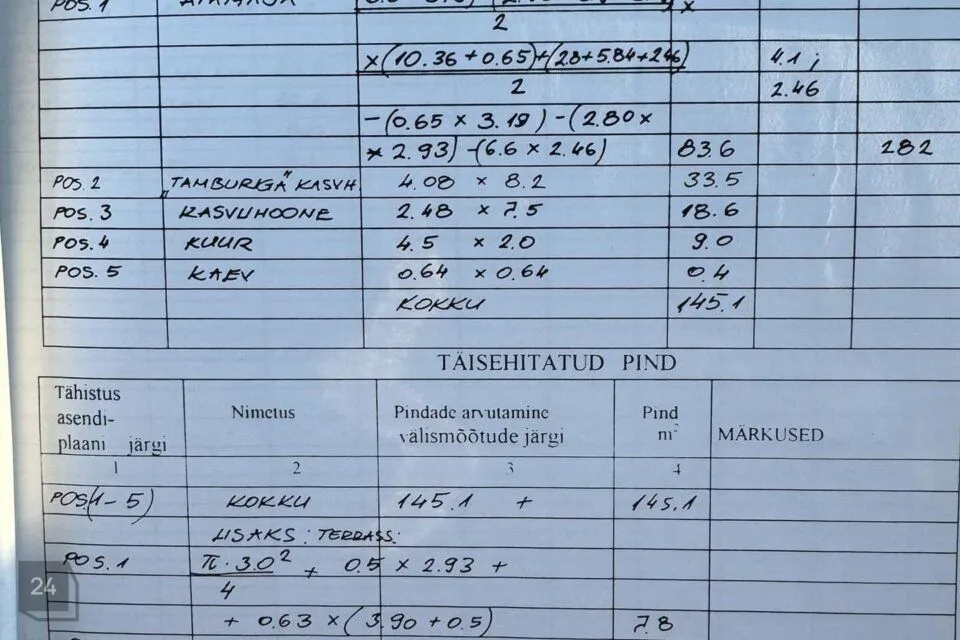 POS. 1
2 x
x(10.36 + 0.65)+(2.8+5.84+2.46) 4.1 ;
2 2.46
-(0.65 x 3.19) -(2.80x
x 2.93) -(6.6 x 2.46) 83.6 282
POS. 2 "TAMBURIGA" KASVH 4.08 x 8.2 33.5
POS. 3 KASVUHOONE 2.48 x 7.5 18.6
POS. 4 KUUR 4.5 x 2.0 9.0
POS. 5 KAEV 0.64 x 0.64 0.4
KOKKU 145.1
TÄISEHITATUD PIND
Tähistus
asendi-
plaani järgi
Nimetus
Pindade arvutamine
välismõõtude järgi
Pind
m²
MÄRKUSED
1 2 3 4
POS(1-5) KOKKU 145.1 + 145.1
LISAKS: TERRASS:
POS. 1 π · 3.0² + 0.5 x 2.93 +
4
+ 0.63 x (3.90 + 0.5) 7.8
24